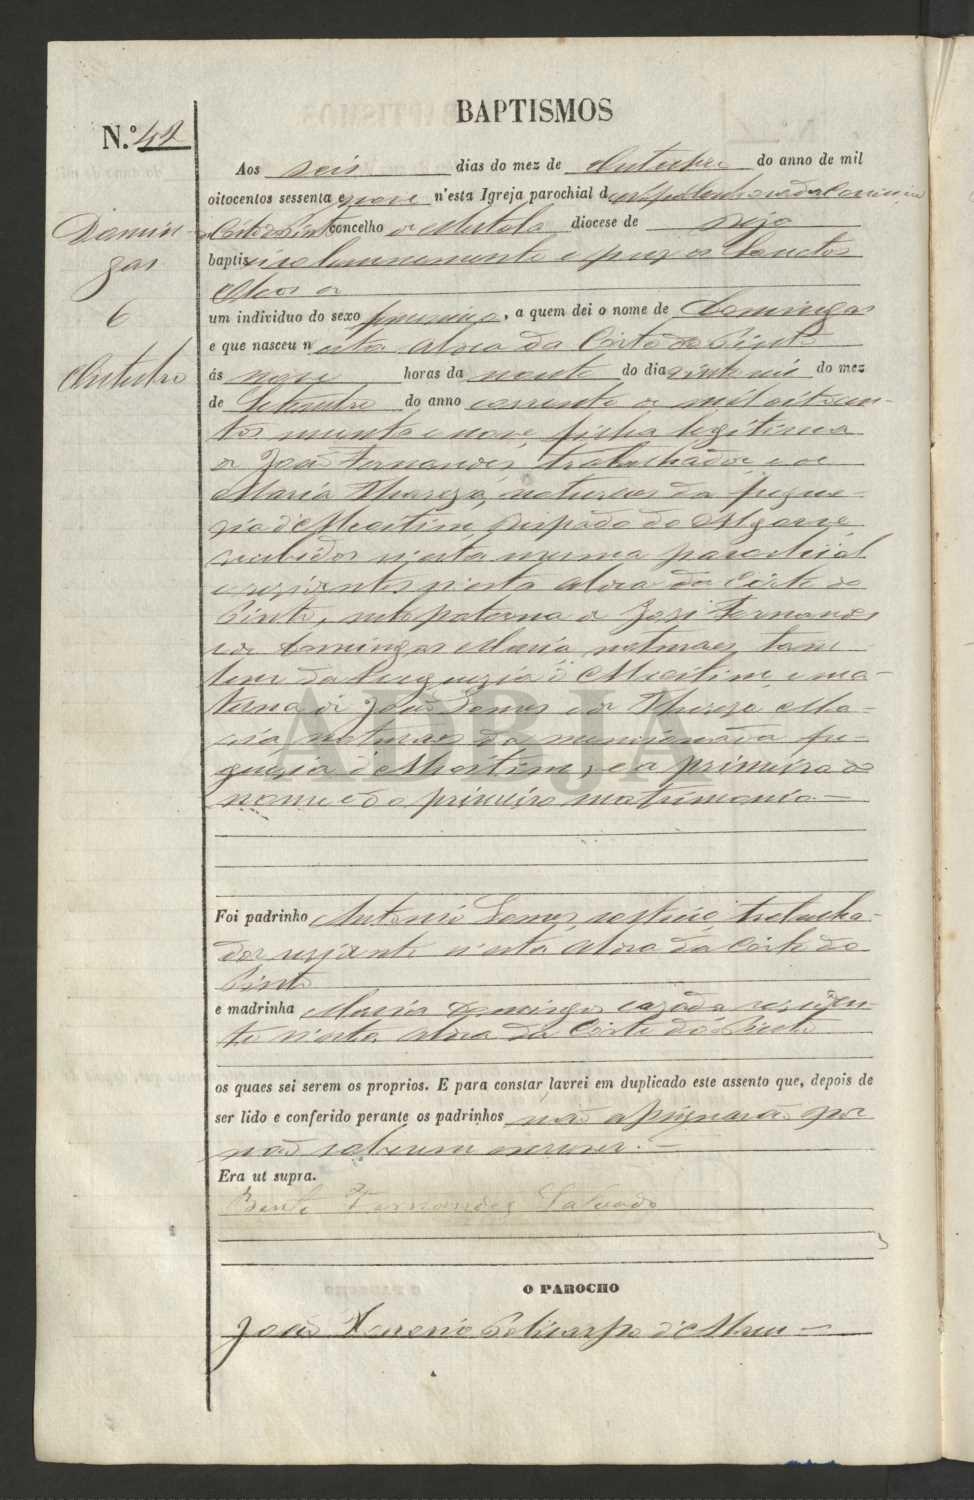 BAPTISMOS
N.º 42
Domin-
gas
6
Outubro
Aos seis dias do mez de Outubro do anno de mil
oitocentos sessenta e nove n'esta Igreja parochial de Nossa Senhora da Conceição
da Corte do Pinto concelho de Mertola diocese de Beja
baptisei solemnemente e puz os Sanctos
Oleos a
um individuo do sexo feminino, a quem dei o nome de Domingas
e que nasceu n'esta aldea da Corte do Pinto
ás nove horas da noute do dia vinte seis do mez
de Setembro do anno corrente de mil oitocen-
tos sessenta e nove, filha legitima
de João Fernandes, trabalhador, e de
Maria Thereza, naturaes da fregue-
zia de Martim, Bispado do Algarve
recebidos n'esta mesma parochial
e rezidentes n'esta aldea da Corte do
Pinto, neta paterna de José Fernandes
e de Domingas Maria, naturaes tam
bem da freguezia de Martim, e ma-
terna de João Gomes e de Thereza Ma-
ria naturaes da mencionada fre-
guezia de Martim, e a primeira do
nome e do primeiro matrimonio
Foi padrinho Antonio Gomes, trabalha-
dor rezidente n'esta aldea da Corte do
Pinto
e madrinha Maria Domingas cazada reziden-
te n'esta aldea da Corte do Pinto
os quaes sei serem os proprios. E para constar lavrei em duplicado este assento que, depois de
ser lido e conferido perante os padrinhos não assignarão por
não saberem escrever.
Era ut supra.
Bento Fernandes Salvado
O PAROCHO
João Policarpo
ADBJA